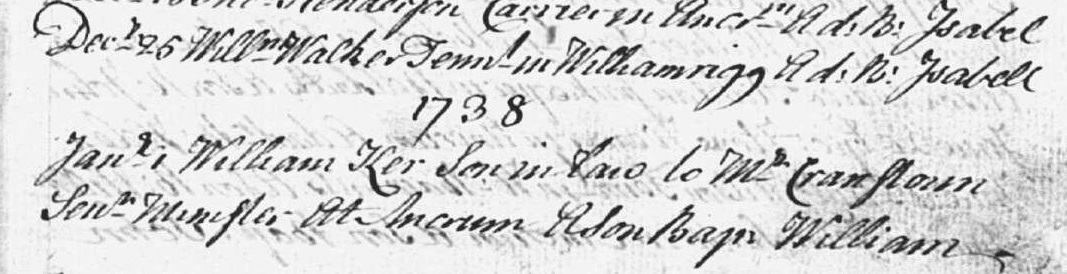 Henderson Carrier in Ancrm A d: N: Isabel
Decr 26 Willm Walker Tennt in Williamrigg A d: N: Isabell
1738
Janr 1 William Ker Son in Law to Mr Cranstoun
Senr Minister At Ancrum A Son Bapt William